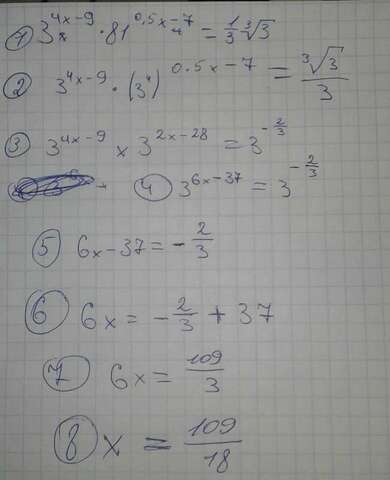 1) 3^(4x-9) · 81^(0,5x-7) = 1/3 ∛3
2 3^(4x-9) · (3^4)^(0.5x-7) = ∛3/3
3 3^(4x-9) × 3^(2x-28) = 3^(-2/3)
4 3^(6x-37) = 3^(-2/3)
5 6x-37 = -2/3
6 6x = -2/3 + 37
7 6x = 109/3
8 x = 109/18